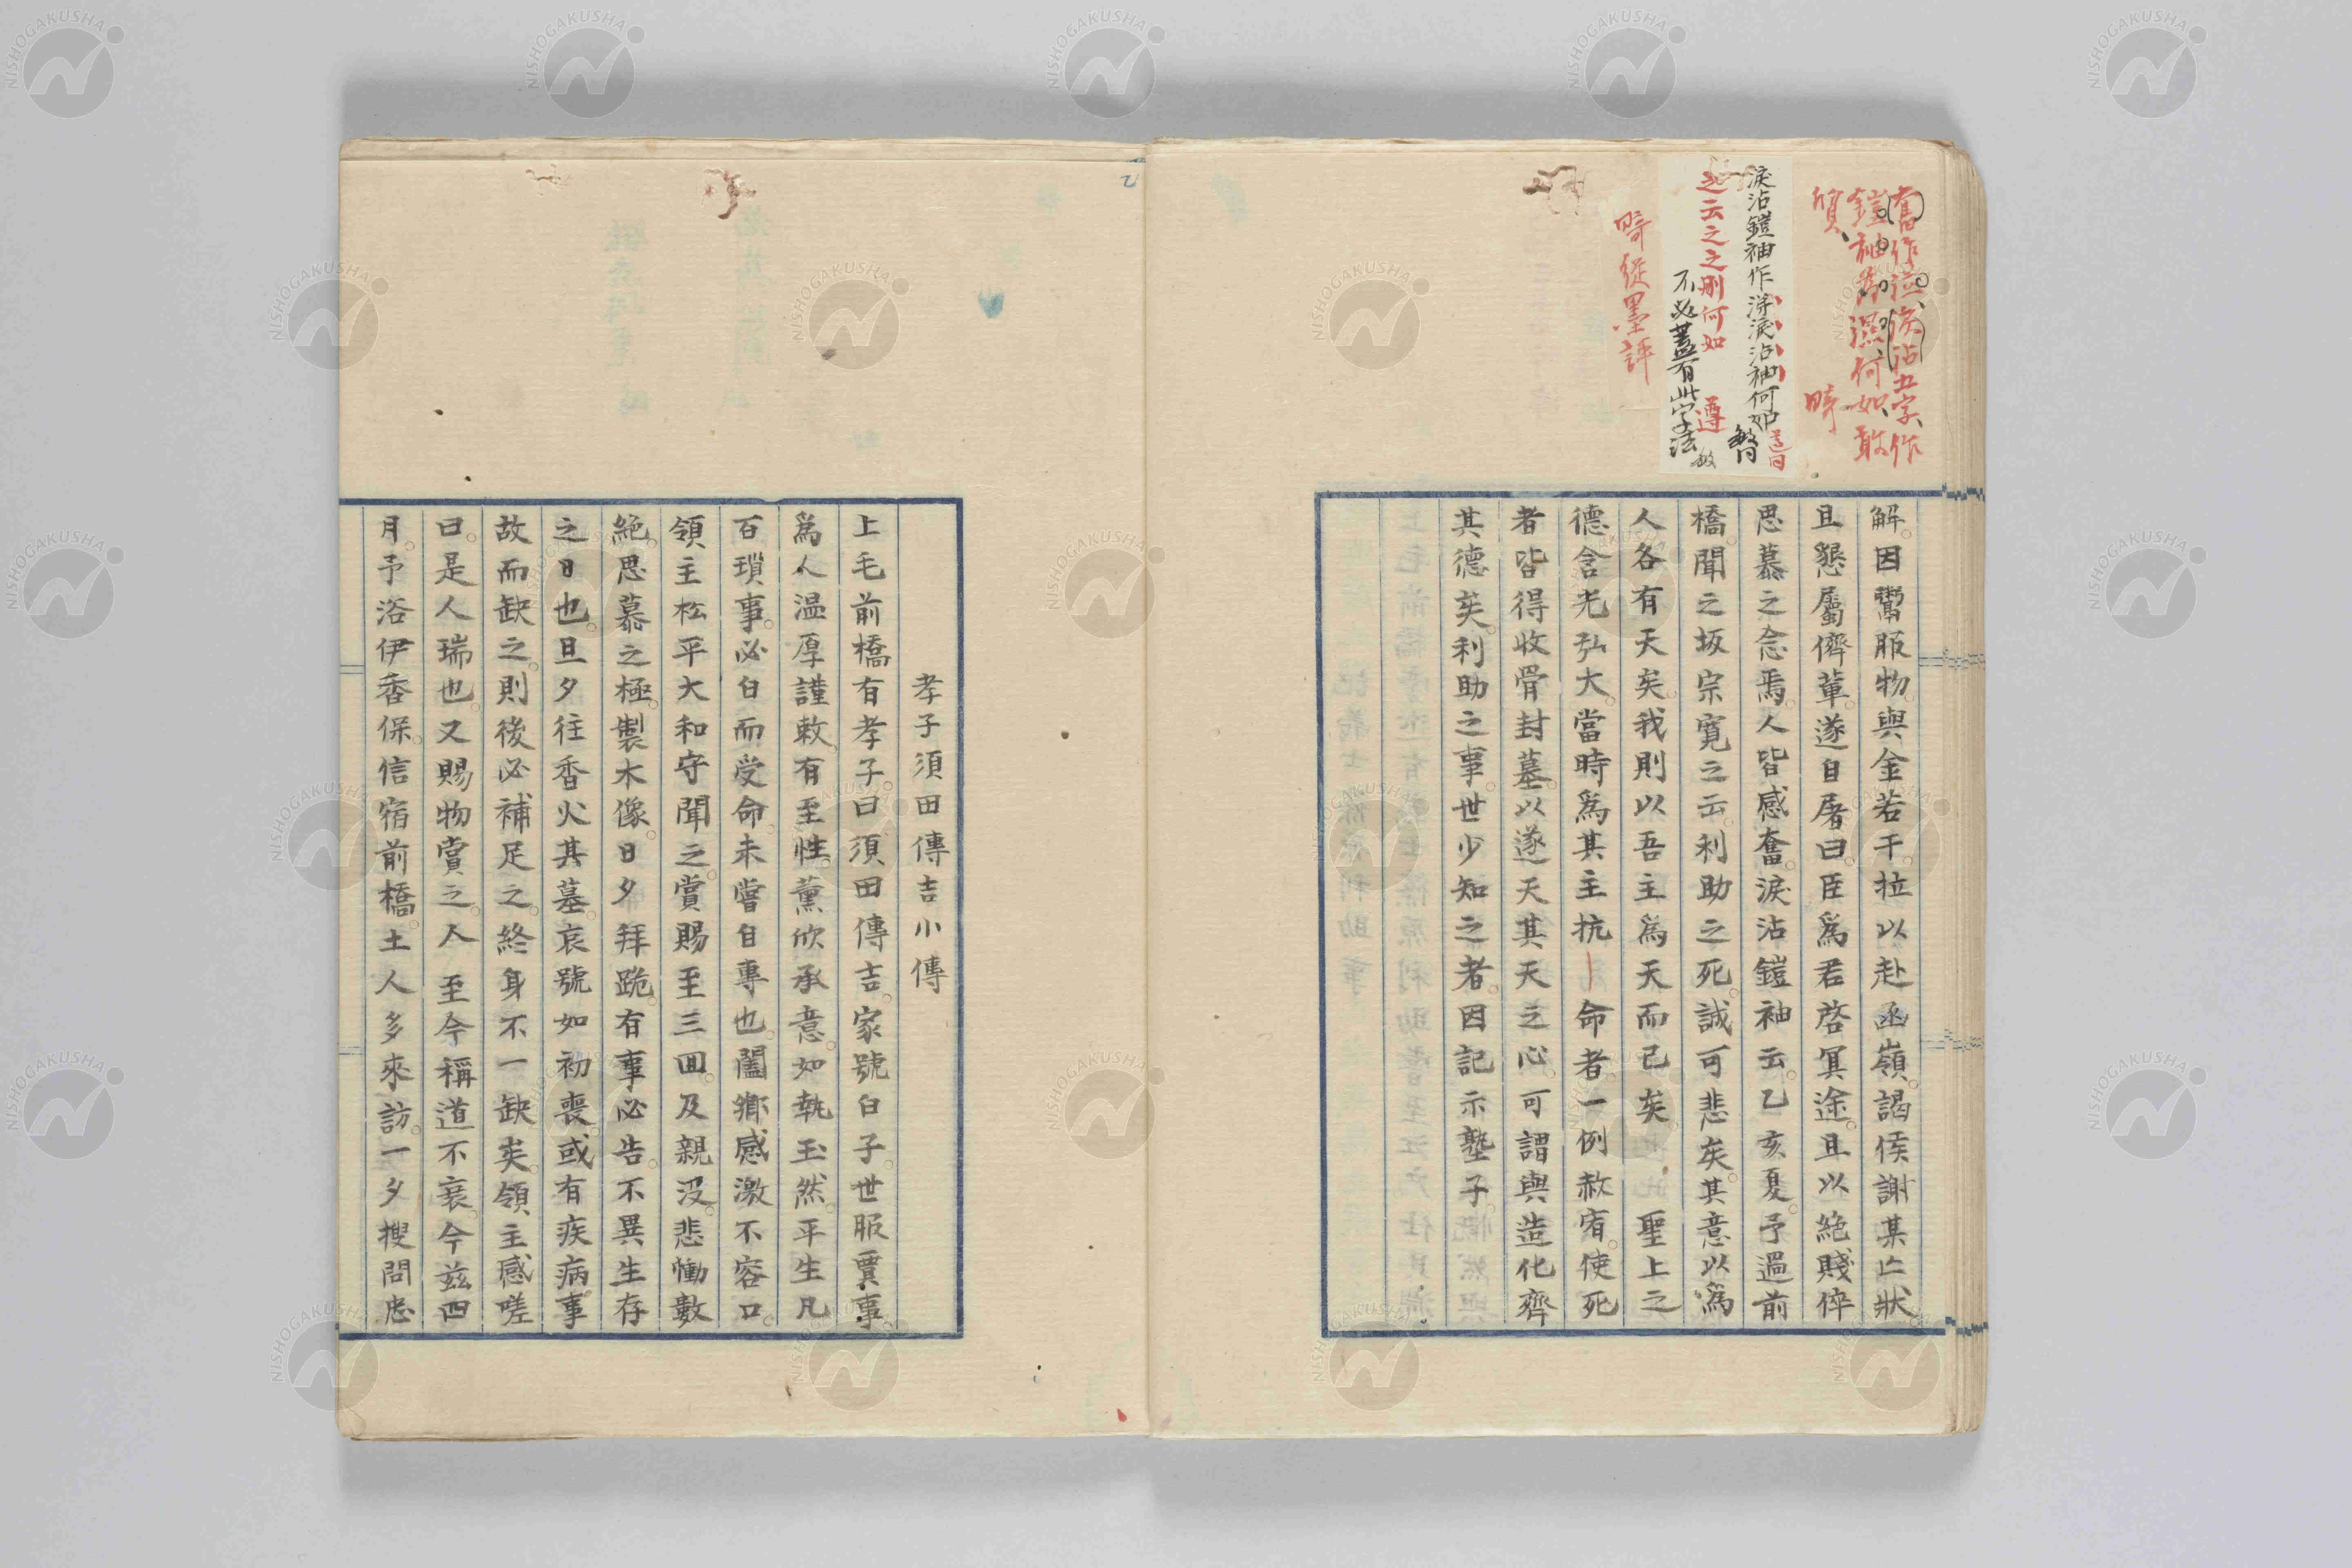 解因鬻服物與金若干拉以赴函嶺謁侯謝某亡狀
且懇屬儕輩遂自屠曰臣爲君啓冥途且以絶賤倅
思慕之念焉人皆感奮淚沾鎧袖云乙亥夏予過前
橋聞之坂宗寛之云利助之死誠可悲矣其意以爲
人各有天矣我則以吾主爲天而已矣 聖上之
德含光弘大當時爲其主抗命者一例赦宥使死
者皆得收骨封墓以遂天其天之心可謂與造化齊
其德矣利助之事世少知之者因記示塾子
沾五字作
鎧袖爲濕何如敢
質
畸
淚沾鎧袖作淚沾袖何如 敏
之云之之刪何如 遵
不必蓋有此字法 敏
畸從墨評
孝子須田傳吉小傳
上毛前橋有孝子曰須田傳吉家號白子世服賈事
爲人温厚謹敕有至性薰欣承意如執玉然平生凡
百瑣事必白而受命未嘗自專也闔鄉感激不容口
領主松平大和守聞之賞賜至三回及親沒悲慟數
絶思慕之極製木像日夕拜跪有事必告不異生存
之日也旦夕往香火其墓哀號如初喪或有疾病事
故而缺之則後必補足之終身不一缺矣領主感嗟
曰是人瑞也又賜物賞之人至今稱道不衰今茲四
月予浴伊香保信宿前橋土人多來訪一夕搜問忠
NISHOGAKUSHA